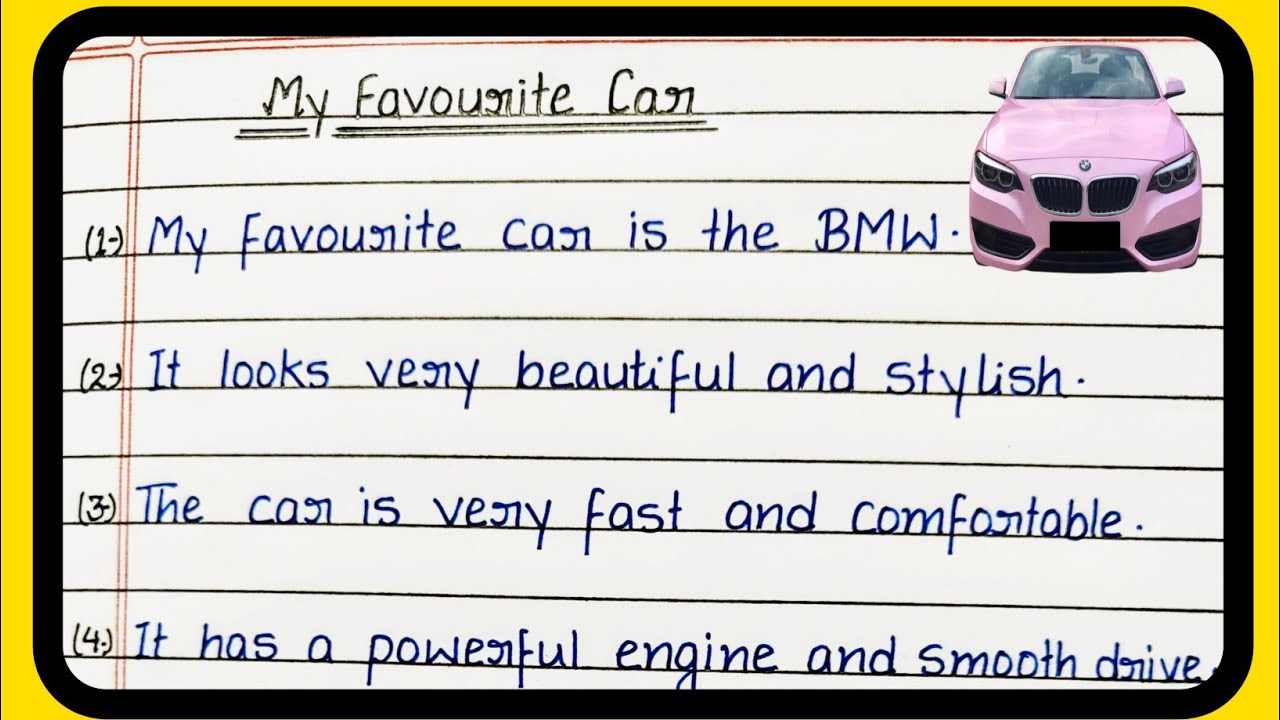 My Favourite Car
(1.) My favourite car is the BMW.
(2.) It looks very beautiful and stylish.
(3.) The car is very fast and comfortable.
(4.) It has a powerful engine and smooth drive.